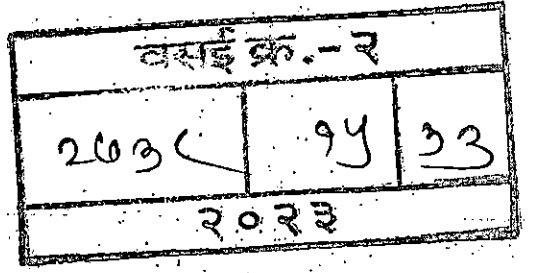 वसई क्र.-२
२७३८ १५ ३३
२०२३